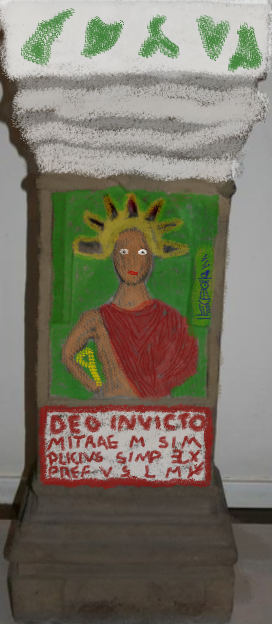 DEO INVICTO
MITRAE M SIM
PLICIVS SIMP ELX
PREF V S L M